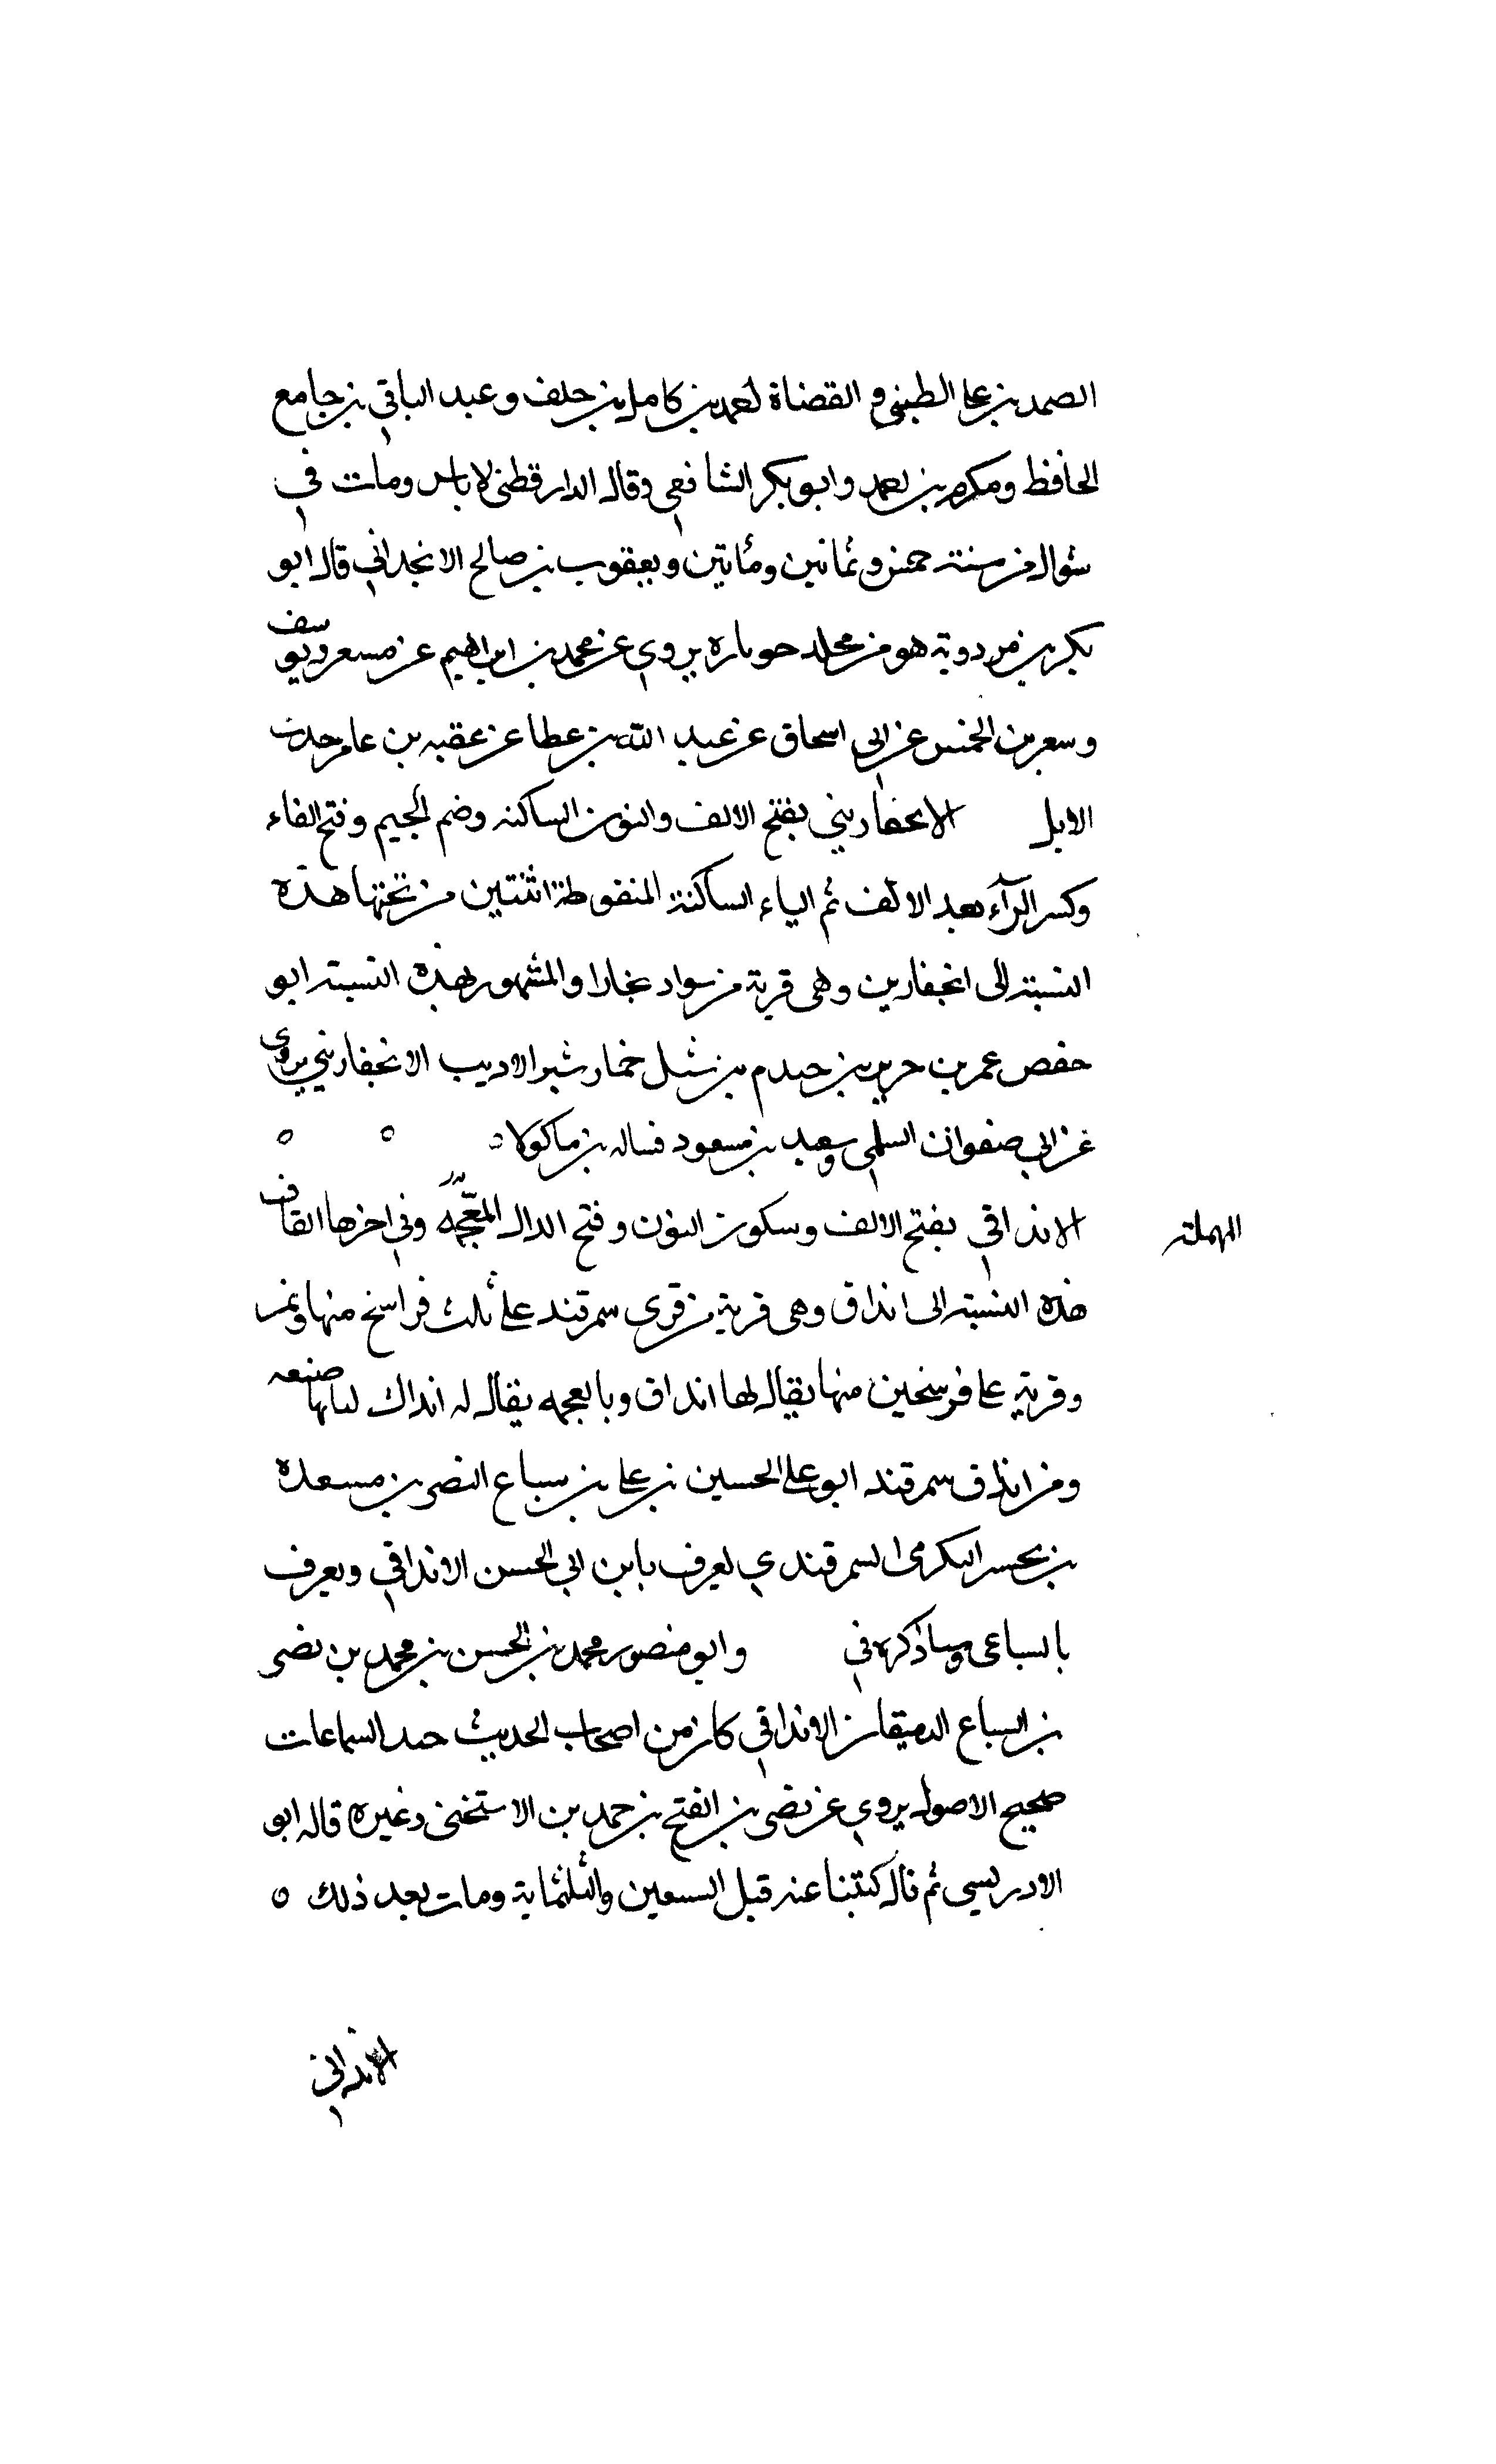 الصمد بن علي الطبني و القضاة احمد بن كامل بن خلف وعبد الباقي بن جامع
الحافظ ومكرم بن احمد وابو بكر الشافعي وقال الدارقطني لا باس ومات في
شوال من سنة خمس وثمانين ومأيتين ويعقوب بن صالح الانجداني قال ابو
بكر بن مردوية هو من محلة حوباره يروي عن محمد بن ابراهيم عن مسعر ويوسف
وسعير بن الخمس عن ابي اسحاق عن عبد الله بن عطا عن عقبه بن عامر حديث
الابل الانجفاريني بفتح الالف والنون الساكنه وضم الجيم وفتح الفاء
وكسر الرآء بعد الالف ثم الياء الساكنة المنقوطة اثنتين من تحتها هذه
النسبة الى انجفارين وهى قرية من سواد بخارا والمشهور بهذه النسبة ابو
حفص عمر بن جرير بن خيدم بن شبل خمار شير الاديب الانجفاريني يروي
عن ابي صفوان السلمي وسعيد بن مسعود قساله بن ماكولا ه ه ه
الانداقي بفتح الالف وسكون النون وفتح الدال المعجمه وفي اخرها القاف
المهملة
هذه النسبة الى انداق وهى قرية من قرى سمرقند على ثلث فراسخ منها وبمر
وقرية على فرسخين منها يقال لها انداق وبالعجمه يقال له انداك لنا بها ضيعه
ومن انداق سمرقند ابو على الحسين بن على بن سباع النضر بن مسعدة
بن بحسر البكرى السمرقندي يعرف بابن ابي الحسن الانداقي ويعرف
بالسباعى وساذكره في وابو منصور محمد بن الحسن بن محمد بن نصر
بن السباع الدهقان الانداقي كان من اصحاب الحديث جيد السماعات
صحيح الاصول يروي عن نصر بن الفتح بن حمد بن الاستخنى وغيره قاله ابو
الادريسي ثم قال كتبنا عنه قبل السبعين والثلثماية ومات بعد ذلك ه
الاندانى